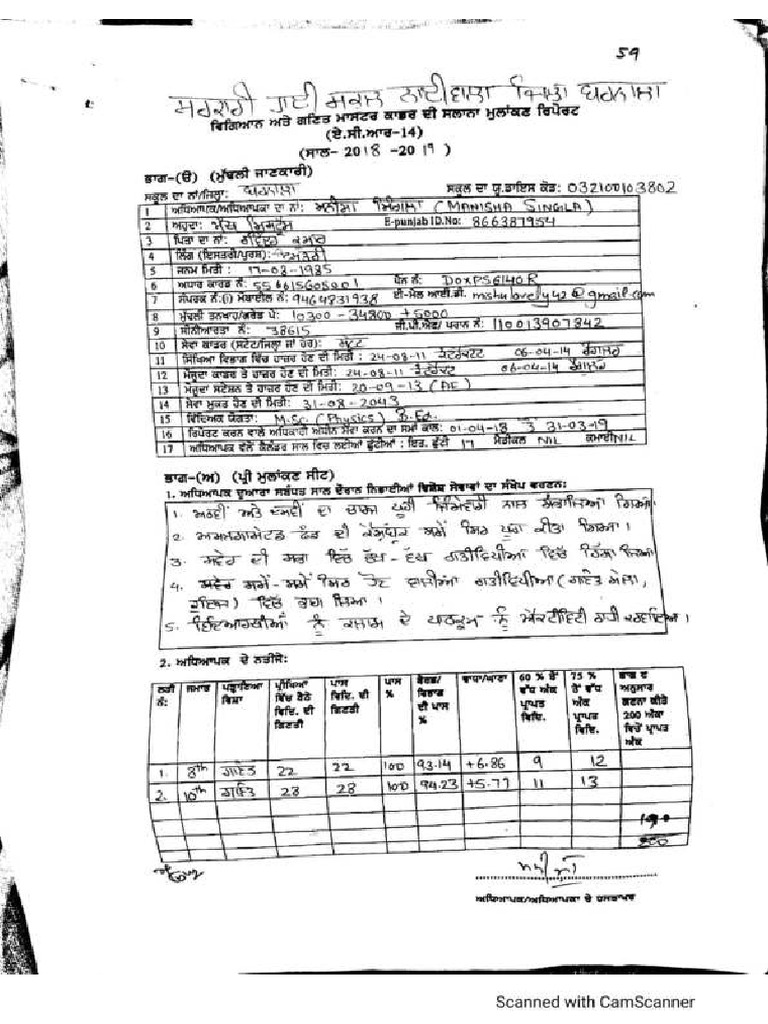 59
ਸਰਕਾਰੀ ਹਾਈ ਸਕੂਲ ਨਾਈਵਾਲਾ ਜਿਲਾ ਬਰਨਾਲਾ
ਵਿਗਿਆਨ ਅਤੇ ਗਣਿਤ ਮਾਸਟਰ ਕਾਡਰ ਦੀ ਸਲਾਨਾ ਮੁਲਾਂਕਣ ਰਿਪੋਰਟ
(ਏ.ਸੀ.ਆਰ-14)
(ਸਾਲ- 2018 -2019 )
ਭਾਗ-(ੳ) (ਮੁੱਢਲੀ ਜਾਣਕਾਰੀ)
ਸਕੂਲ ਦਾ ਨਾਂ/ਜਿਲ੍ਹਾ: ਬਰਨਾਲਾ ਸਕੂਲ ਦਾ ਯੂ.ਡਾਇਸ ਕੋਡ: 032100103802
1 ਅਧਿਆਪਕ/ਅਧਿਆਪਕਾ ਦਾ ਨਾਂ: ਮਨੀਸ਼ਾ ਸਿੰਗਲਾ (MANISHA SINGLA)
2 ਅਹੁਦਾ: ਮੈਥ ਮਿਸਟ੍ਰੈਸ E-punjab ID.No: 866387954
3 ਪਿਤਾ ਦਾ ਨਾਂ: ਰਵਿੰਦਰ ਕੁਮਾਰ
4 ਲਿੰਗ (ਇਸਤਰੀ/ਪੁਰਸ਼): ਇਸਤਰੀ
5 ਜਨਮ ਮਿਤੀ : 17-08-1985
6 ਅਧਾਰ ਕਾਰਡ ਨੰ: 556615605001 ਪੈਨ ਨੰ: DOXPS6140R
7 ਸੰਪਰਕ ਨੰ:(i) ਮੋਬਾਈਲ ਨੰ: 9464831938 ਈ-ਮੇਲ ਆਈ.ਡੀ. mishulovely42@gmail.com
8 ਮੁੱਢਲੀ ਤਨਖਾਹ/ਗਰੇਡ ਪੇ: 10300-34800 +5000
9 ਸੀਨੀਆਰਤਾ ਨੰ: 38615 ਜੀ.ਪੀ.ਐਫ/ ਪਰਾਨ ਨੰ: 110013907842
10 ਸੇਵਾ ਕਾਡਰ (ਸਟੇਟ/ਜਿਲ੍ਹਾ ਜਾਂ ਹੋਰ): ਸਟੇਟ
11 ਸਿੱਖਿਆ ਵਿਭਾਗ ਵਿੱਚ ਹਾਜ਼ਰ ਹੋਣ ਦੀ ਮਿਤੀ : 24-08-11 06-04-14 ਰੈਗੂਲਰ
12 ਮੌਜੂਦਾ ਕਾਡਰ ਤੇ ਹਾਜ਼ਰ ਹੋਣ ਦੀ ਮਿਤੀ: 24-08-11 06-04-14 ਰੈਗੂਲਰ
13 ਮੌਜੂਦਾ ਸਟੇਸ਼ਨ ਤੇ ਹਾਜ਼ਰ ਹੋਣ ਦੀ ਮਿਤੀ: 20-09-13
14 ਸੇਵਾ ਮੁਕਤ ਹੋਣ ਦੀ ਮਿਤੀ: 31-08-2043
15 ਵਿੱਦਿਅਕ ਯੋਗਤਾ: M.Sc. (Physics) B.Ed.
16 ਰਿਪੋਰਟ ਕਰਨ ਵਾਲੇ ਅਧਿਕਾਰੀ ਅਧੀਨ ਸੇਵਾ ਕਰਨ ਦਾ ਸਮਾਂ ਕਾਲ: 01-04-18 ਤੋਂ 31-03-19
17 ਅਧਿਆਪਕ ਵੱਲੋਂ ਕੈਲੰਡਰ ਸਾਲ ਵਿਚ ਲਈਆਂ ਛੁੱਟੀਆਂ : ਇਤ. ਛੁੱਟੀ 17 ਮੈਡੀਕਲ NIL ਕਮਾਈ NIL
ਭਾਗ-(ਅ) (ਪ੍ਰੀ ਮੁਲਾਂਕਣ ਸੀਟ)
1. ਅਧਿਆਪਕ ਦੁਆਰਾ ਸਬੰਧਤ ਸਾਲ ਦੌਰਾਨ ਨਿਭਾਈਆਂ ਵਿਸ਼ੇਸ਼ ਸੇਵਾਵਾਂ ਦਾ ਸੰਖੇਪ ਵਰਣਨ:
1. ਅਠਵੀਂ ਅਤੇ ਦਸਵੀਂ ਦਾ ਚਾਰਜ ਪੂਰੀ ਜਿੰਮੇਵਾਰੀ ਨਾਲ ਨਿਭਾਇਆ ਗਿਆ।
2. ਅਮਲਗਾਮੇਟਡ ਫੰਡ ਦੀ ਕੈਸ਼ਬੁੱਕ ਸਮੇਂ ਸਿਰ ਪੂਰਾ ਕੀਤਾ ਗਿਆ।
3. ਸਵੇਰ ਦੀ ਸਭਾ ਵਿੱਚ ਵੱਖ-ਵੱਖ ਗਤੀਵਿਧੀਆਂ ਵਿੱਚ ਹਿੱਸਾ ਲਿਆ।
4. ਸਮੇਂ-ਸਮੇਂ ਸਿਰ ਹੋਣ ਵਾਲੀਆਂ ਗਤੀਵਿਧੀਆਂ (ਗਣਿਤ ਮੇਲਾ,
ਕੁਇਜ਼) ਵਿੱਚ ਭਾਗ ਲਿਆ।
5. ਵਿਦਿਆਰਥੀਆਂ ਨੂੰ ਕਲਾਸ ਦੇ ਪਾਠਕ੍ਰਮ ਨੂੰ ਐਕਟੀਵਿਟੀ ਰਾਹੀਂ ਕਰਵਾਇਆ।
2. ਅਧਿਆਪਕ ਦੇ ਨਤੀਜੇ:
ਲੜੀ ਨੰ: ਜਮਾਤ ਪੜ੍ਹਾਇਆ ਵਿਸ਼ਾ ਪ੍ਰੀਖਿਆ ਵਿੱਚ ਬੈਠੇ ਵਿਦਿ. ਦੀ ਗਿਣਤੀ ਪਾਸ ਵਿਦਿ. ਦੀ ਗਿਣਤੀ ਪਾਸ % ਬੋਰਡ/ ਵਿਭਾਗ ਦੀ ਪਾਸ % ਵਾਧਾ/ਘਾਟਾ 60 % ਤੋਂ ਵੱਧ ਅੰਕ ਪ੍ਰਾਪਤ ਵਿਦਿ. 75 % ਤੋਂ ਵੱਧ ਅੰਕ ਪ੍ਰਾਪਤ ਵਿਦਿ. ਭਾਗ ੲ ਅਨੁਸਾਰ ਗਣਨਾ ਕੀਤੇ 200 ਅੰਕਾਂ ਵਿਚੋਂ ਪ੍ਰਾਪਤ ਅੰਕ
1. 8th ਗਣਿਤ 22 22 100 93.14 +6.86 9 12
2. 10th ਗਣਿਤ 28 28 100 94.23 +5.77 11 13
200
ਅਧਿਆਪਕ/ਅਧਿਆਪਕਾ ਦੇ ਹਸਤਾਖਰ
Scanned with CamScanner